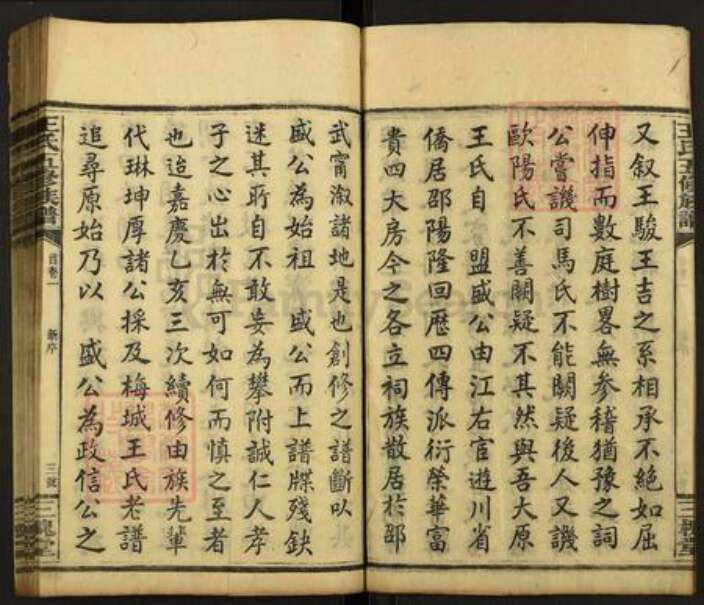 又叙王駿王吉之系相承不絕如屈
伸指而數庭樹畧無參稽猶豫之詞
公嘗譏司馬氏不能闕疑後人又譏
歐陽氏不善闕疑不其然與吾大原
王氏自 盟盛公由江右官遊川省
僑居邵陽隆回歷四傳派衍榮華富
貴四大房今之各立祠族散居於邵
武甯溆諸地是也創修之譜斷以
盛公為始祖 盛公而上譜牒殘缺
迷其所自不敢妄為攀附誠仁人孝
子之心出於無可如何而慎之至者
也迨嘉慶乙亥三次續修由族先輩
代琳坤厚諸公採及梅城王氏老譜
追尋原始乃以 盛公為政信公之
王氏五修族譜
首卷一
新序
三號
三槐堂